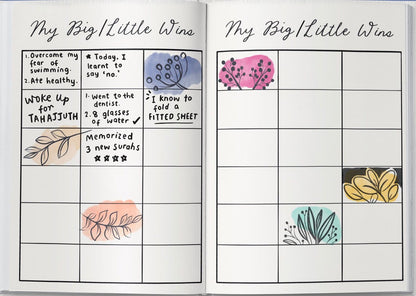 My Big/Little Wins
1. Overcome my
fear of
swimming.
2. Ate healthy.
* Today, I
learnt to
say 'no.'
WOKE UP
for
TAHAJJUTH
1. Went to the
dentist.
2. 8 glasses
of water ✓
I know to
fold a
FITTED SHEET
Memorized
3 new surahs
★★★★
My Big/Little Wins